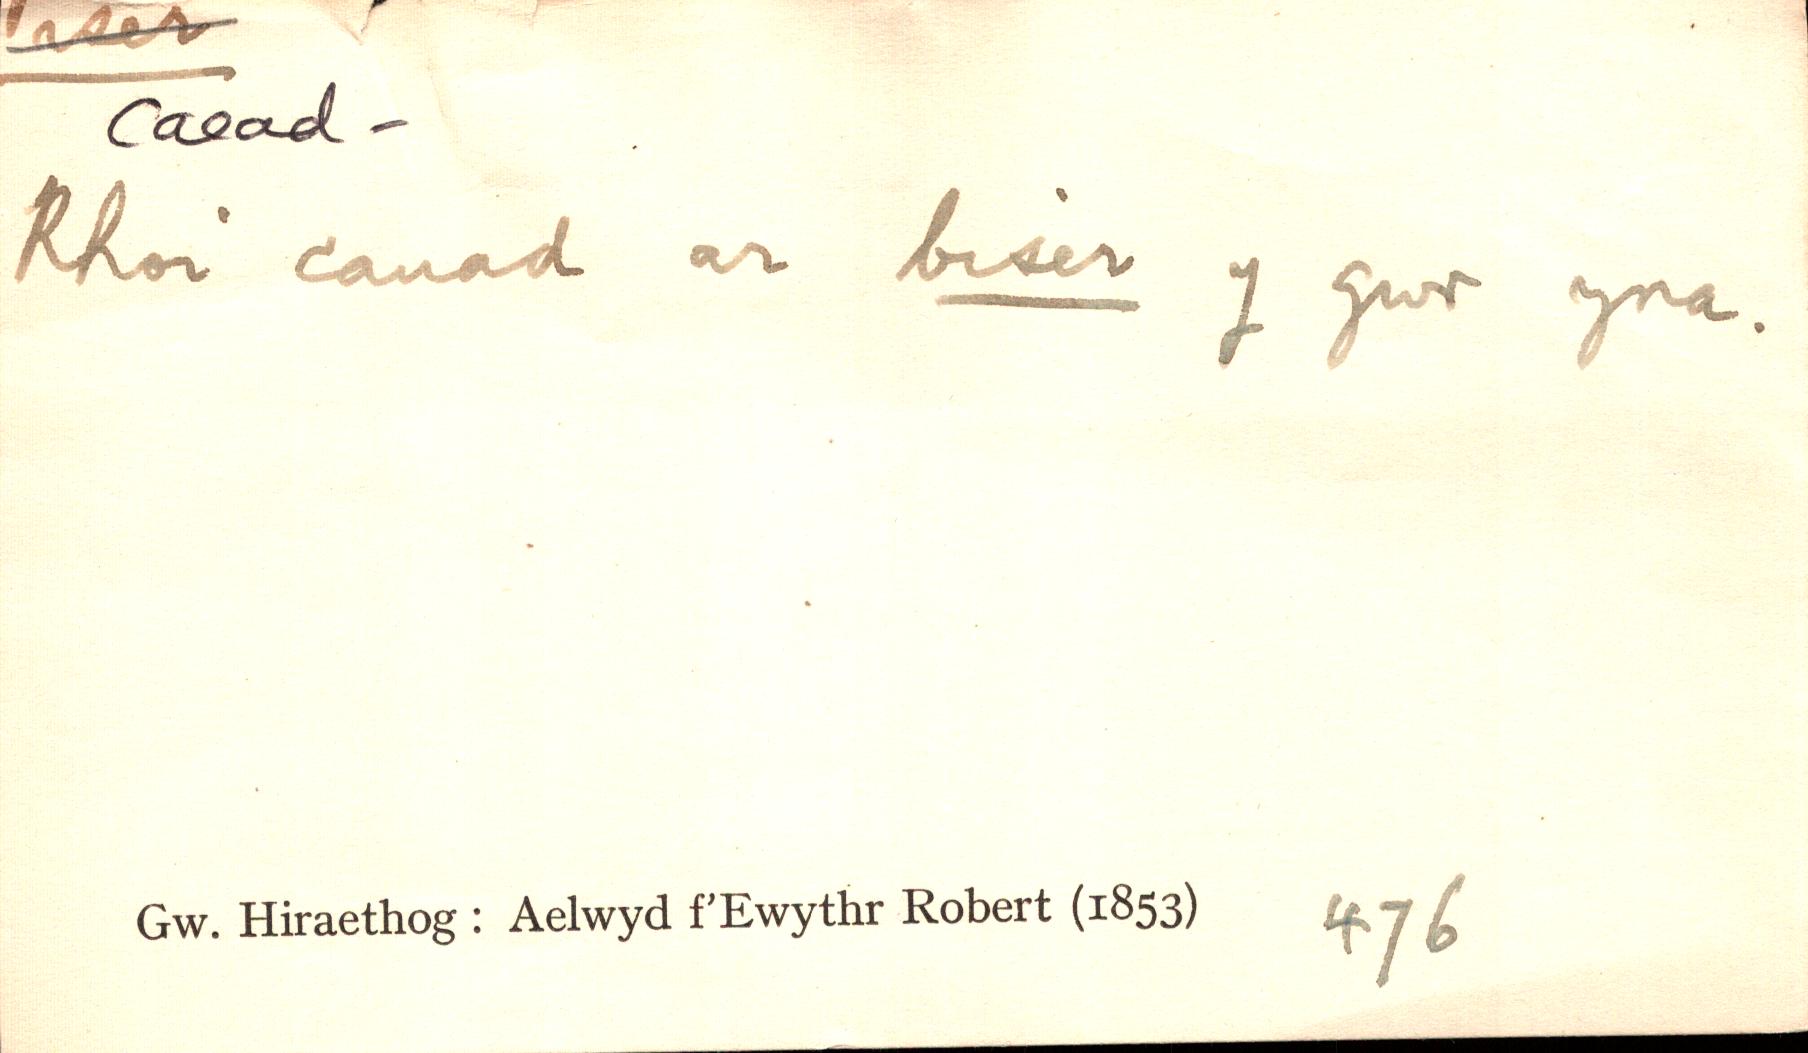 Piser
caead -
Rhoi cauad ar biser y gwr yna.
Gw. Hiraethog : Aelwyd f'Ewythr Robert (1853) 476